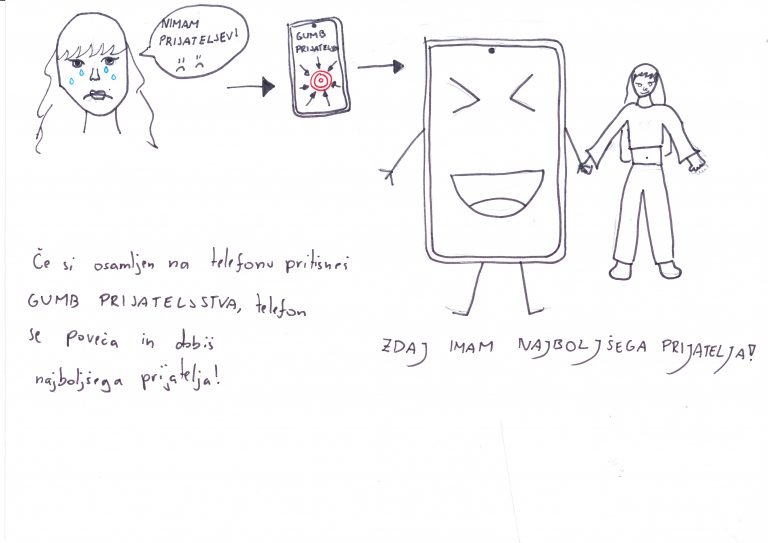 NIMAM
PRIJATELJEV!
GUMB
PRIJATELJ
Če si osamljen na telefonu pritisneš
GUMB PRIJATELJSTVA, telefon
se poveča in dobiš
najboljšega prijatelja!
ZDAJ IMAM NAJBOLJŠEGA PRIJATELJA!